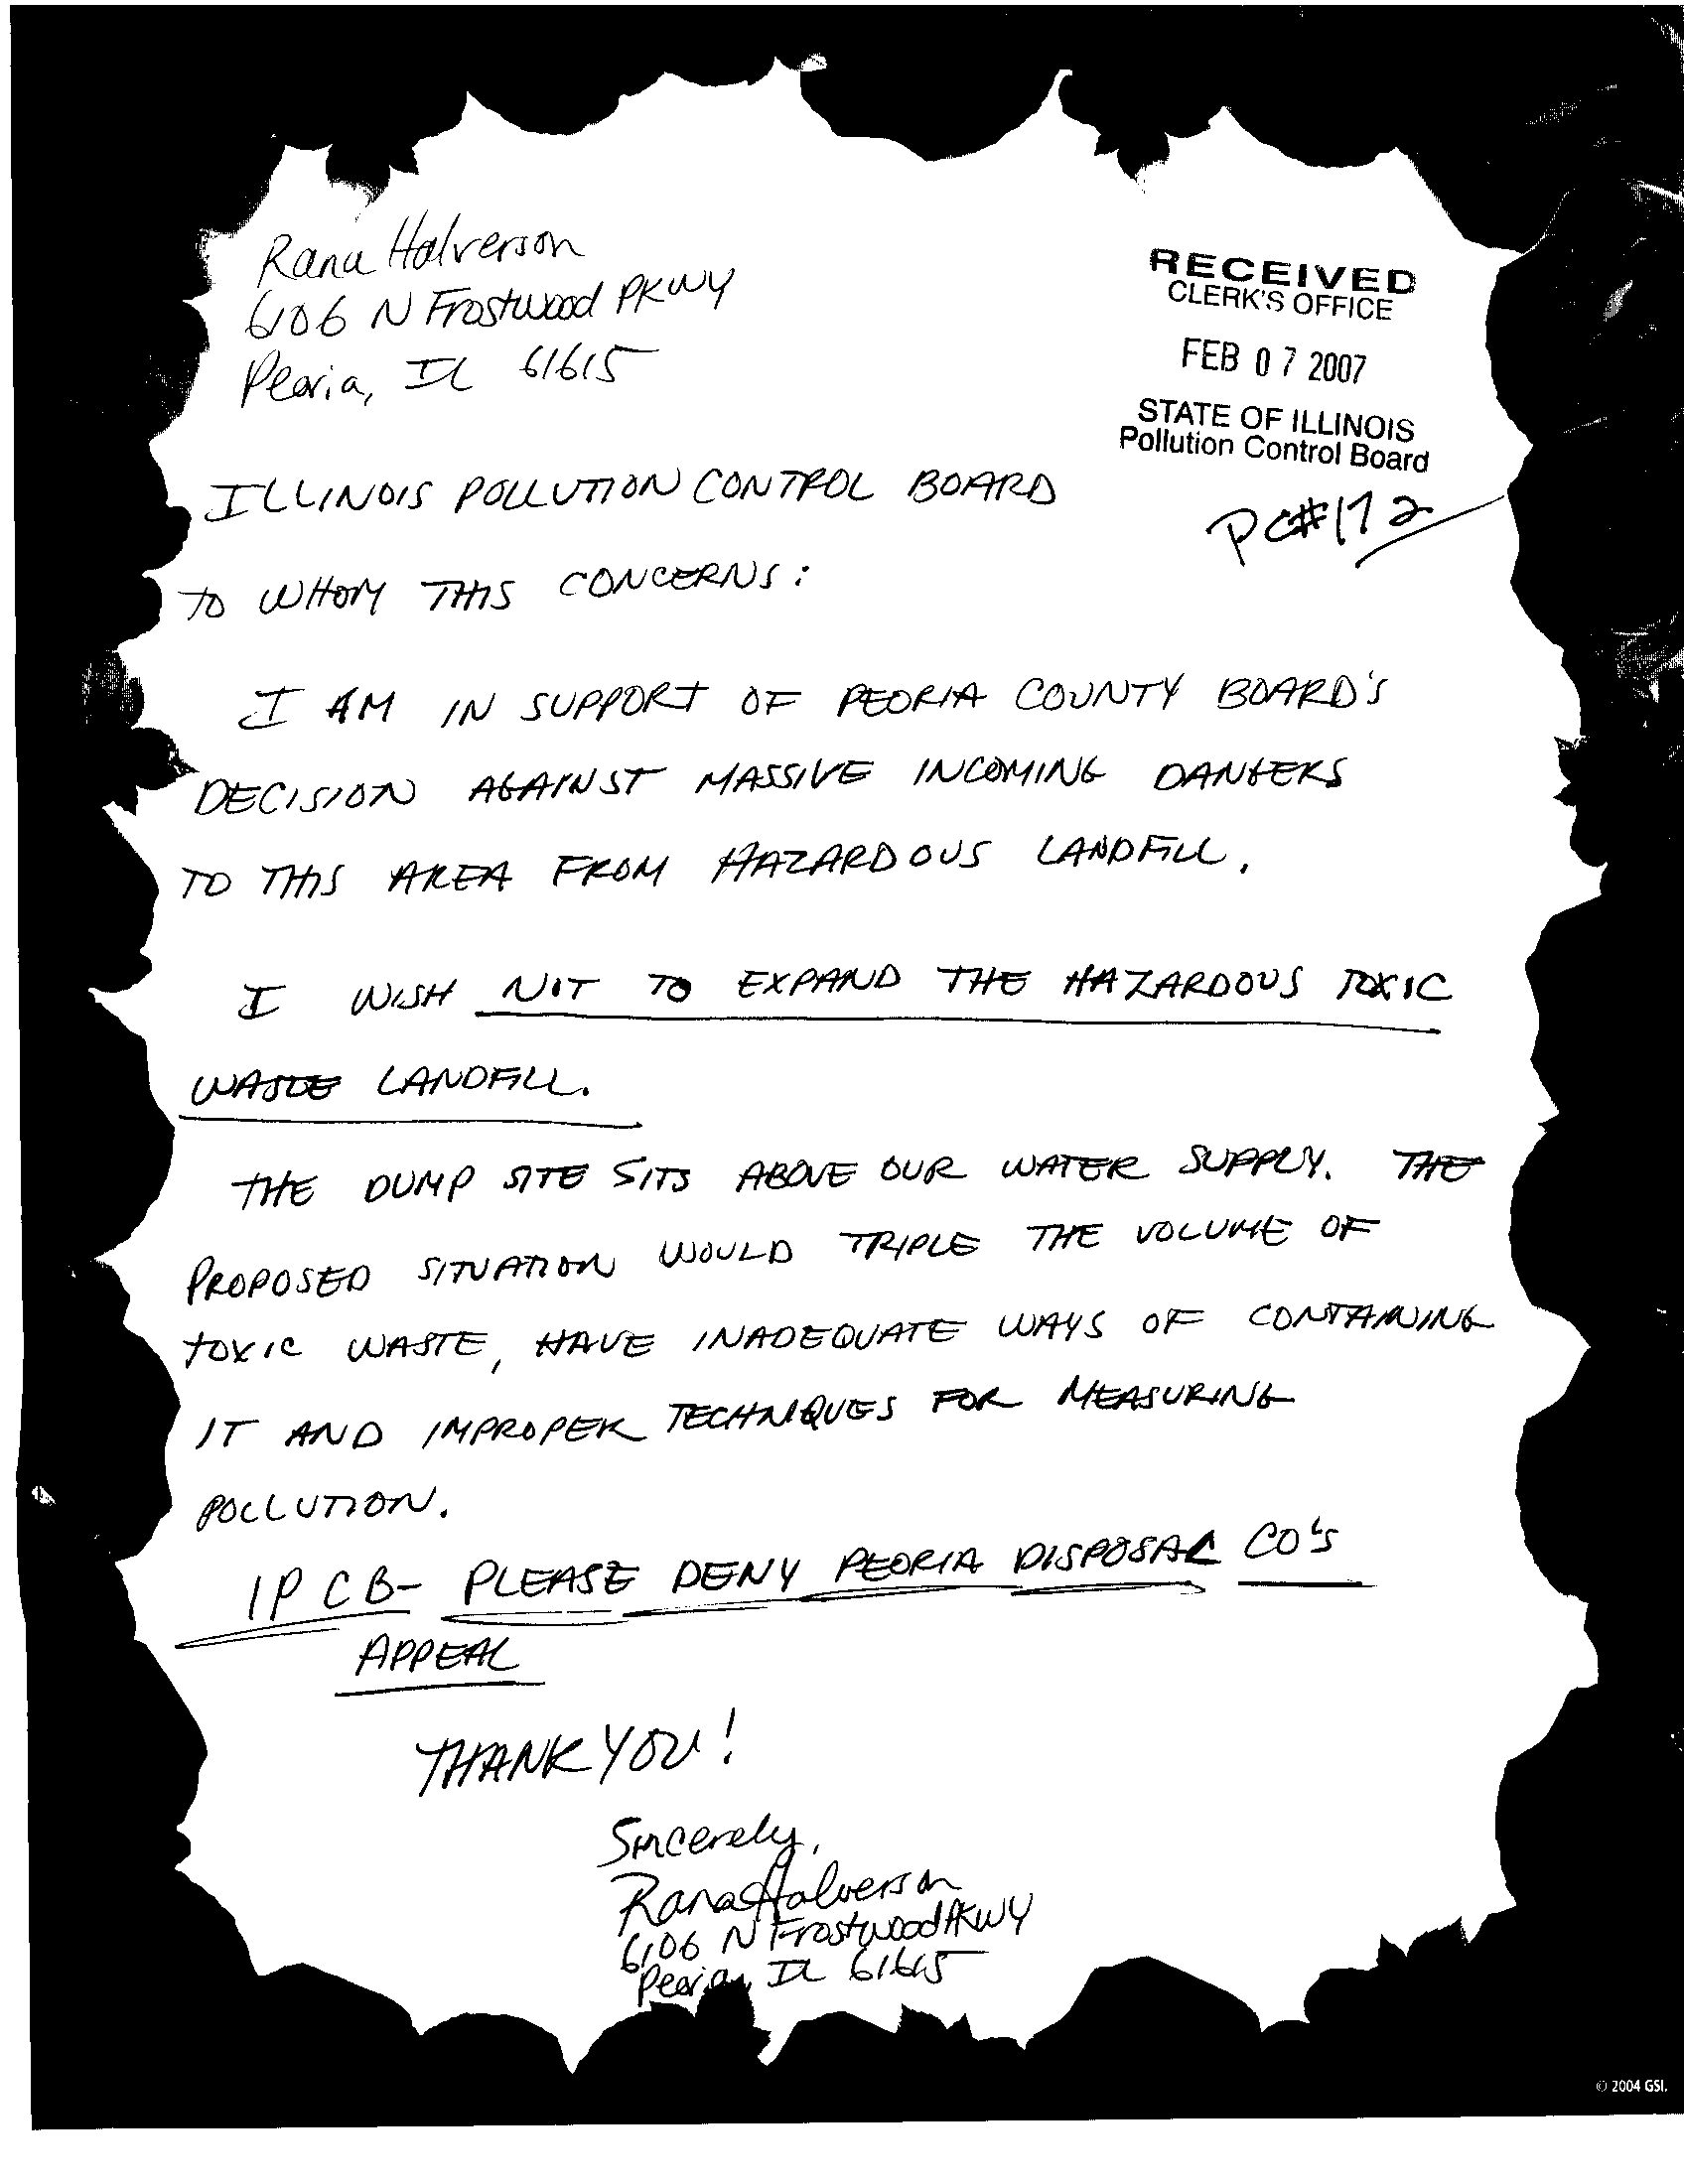 Rana Halverson
6106 N Frostwood PKWY
Peoria, IL 61615
RECEIVED
CLERK'S OFFICE
FEB 07 2007
STATE OF ILLINOIS
Pollution Control Board
PC#172
ILLINOIS POLLUTION CONTROL BOARD
TO WHOM THIS CONCERNS:
I AM IN SUPPORT OF PEORIA COUNTY BOARD'S
DECISION AGAINST MASSIVE INCOMING DANGERS
TO THIS AREA FROM HAZARDOUS LANDFILL.
I WISH NOT TO EXPAND THE HAZARDOUS TOXIC
WASTE LANDFILL.
THE DUMP SITE SITS ABOVE OUR WATER SUPPLY. THE
PROPOSED SITUATION WOULD TRIPLE THE VOLUME OF
TOXIC WASTE, HAVE INADEQUATE WAYS OF CONTAINING
IT AND IMPROPER TECHNIQUES FOR MEASURING
POLLUTION.
IPCB- PLEASE DENY PEORIA DISPOSAL CO'S
APPEAL
THANK YOU!
Sincerely,
Rana Halverson
6106 N Frostwood PKWY
Peoria, IL 61615
© 2004 GSI.